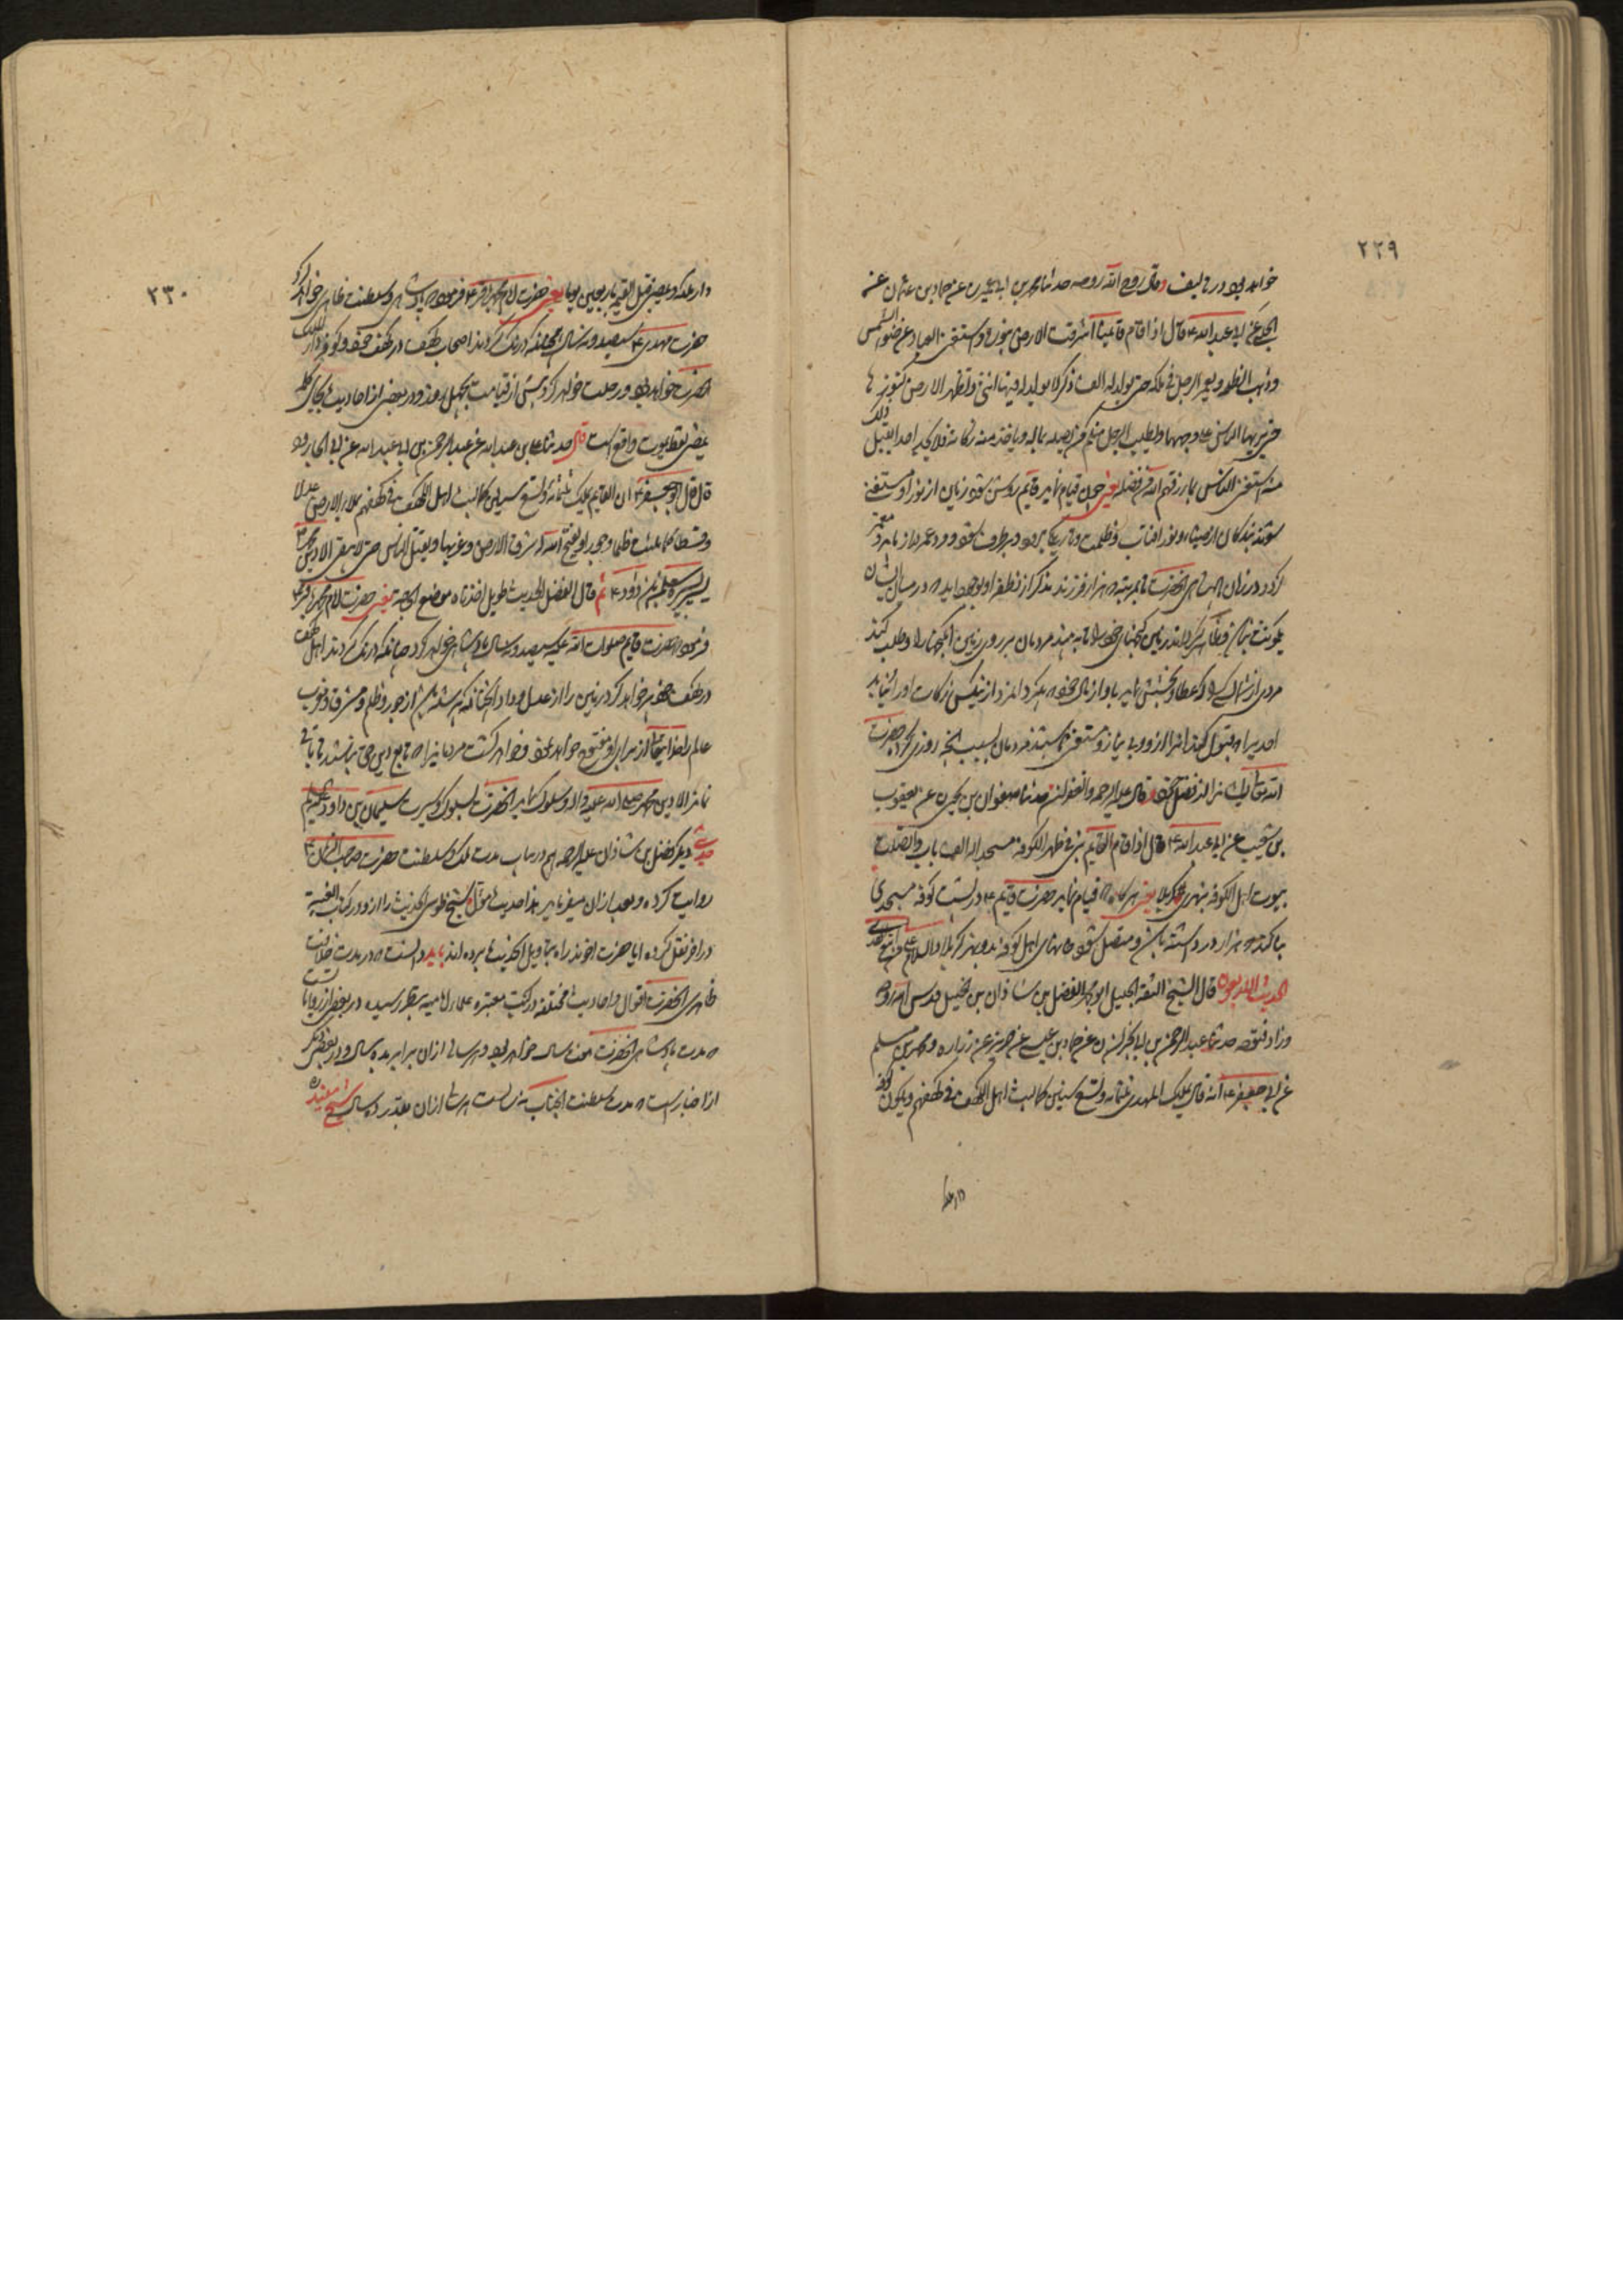 ٢٢٩
خواهد بود در تالیف و قال روح الله روحه حدثنا محمد بن ابی عمیر رضی عنه عن حماد بن عثمان عن
ابی عبد الله ع قال اذا قام قائمنا اشرقت الارض بنوره و استغنی العباد عن ضوء الشمس
و ذهب الظلمة و یعمر الرجل فی ملکه حتی یولد له الف ذکر لا یولد له فیها انثی و تظهر الارض کنوزها
حتی یریها الناس علی وجهها و یطلب الرجل منکم من یصله بماله و یاخذ منه زکاته فلا یجد احدا یقبل ذلک
منه استغنی الناس بما رزقهم الله من فضله یعنی چون قیام نماید قایم روشن شود زمین از نور او و مستغنی
شوند بندکان از ضیاء و نور افتاب و ظلمت و تاریکی برطرف شود و عمر دراز یابد مرد
در زمان پادشاهی انحضرت تا بمرتبه که هزار فرزند مذکر از نطفه او بوجود اید که در میان ایشان
یک دختر نباشد و ظاهر کرداند زمین کنجهای خود را تا به بینند مردمان بر روی زمین ان کنجها را و طلب کند
مردی از شما کسی را که عطا و بخشش نماید باو از مال خود و بکیرد از و زکات او را نیابد
احدیرا که قبول کند انرا از او و بی نیاز و مستغنی باشند مردمان بسبب انچه روزی کرده حضرت
الله تعالی ایشانرا از فضل خود و قال علیه الرحمه و الغفران حدثنا صفوان بن یحیی رض عن یعقوب
بن شعیب عن ابی عبد الله ع قال اذا قام القایم بنی فی ظهر الکوفه مسجدا له الف باب و اتصلت
بیوت اهل الکوفه بنهری کربلا یعنی هرکاه که قیام نماید حضرت قایم ع در پشت کوفه مسجدی
بنا کند که هزار در داشته باشد و متصل شود خانهای اهل کوفه بدو نهر کربلا و السلام علی من اتبع الهدی
قال الشیخ الثقه الجلیل ابو محمد الفضل بن شاذان بن الخلیل قدس الله روحه
و زاد فتوحه حدثنا عبد الرحمن بن ابی نجران رض عن حماد بن عیسی عن حریز عن زراره و محمد بن مسلم
عن ابی جعفر ع انه قال یملک المهدی ثلثمائه و تسع سنین کما لبث اهل الکهف فی کهفهم و یکون کوفه
دار ملکه
٢٣٠
دار ملکه و یمضی قبل القیمه باربعین یوما یعنی حضرت امام محمد باقر ع فرمود که پادشاهی و سلطنت ظاهری خواهد کرد
حضرت مهدی ع سیصد و نه سال همچنانکه درنک کردند اصحاب کهف در کهف خود و کوفه دار الملک
انحضرت خواهد بود و رحلت خواهد کرد پیش از قیامت بچهل روز و در بعضی از احادیث بجای کلمه
یمضی لفظ یموت واقع است قال حدثنا علی بن عبد الله عن عبد الرحمن بن ابی عبد الله عن ابی الجارود
قال قال ابو جعفر ع ان القایم یملک ثلثمائه و تسع سنین کما لبث اهل الکهف فی کهفهم یملاء الارض عدلا
و قسطا کما ملئت ظلما و جورا و یفتح الله له شرق الارض و غربها و یقتل الناس حتی لا یبقی الا دین محمد ص
یسیر بسیره سلیمان بن داود ع ثم قال الفضل الحدیث طویل اخذنا منه موضع الحاجه یعنی حضرت امام محمد باقر ع
فرمود که حضرت قایم صلوات الله علیه سیصد و نه سال پادشاهی خواهد کرد چنانکه درنک کردند اهل کهف
در کهف خود پر خواهد کرد زمین را از عدل و داد انچنانکه پر شده باشد از جور و ظلم و مشرق و مغرب
عالم را خدایتعالی از برای او مفتوح خواهد نمود و خواهد کشت مردمانیرا که تابع دین حق نباشند تا باقی
نماند الا دین محمد صلی الله علیه و اله و سلوک نماید انحضرت بسلوک و سیرت سلیمان بن داود علیهم السلم
حدیث دیکر فضل بن شاذان علیه الرحمه هم در باب مدت ملک و سلطنت حضرت صاحب الزمان ع
روایت کرده و بعد از ان میفرماید هذا حدیث مؤول شیخ طوسی انحدیث را از او در کتاب الغیبه
در اخر نقل کرده ایا حضرت اخوند راه بتاویل انحدیث برده اند باید دانست که در مدت خلافت
ظاهری انحضرت اقوال و احادیث مختلفه در کتب معتبره علماء امامیه بنظر رسیده در بعضی از روایات است
که مدت پادشاهی انحضرت هفت سال خواهد بود و هر سالی از ان برابر ده سال و در بعضی دیکر
از اخبار است که مدت سلطنت انجناب سالیست از ان بقدر ده سال شیخ مفید ره